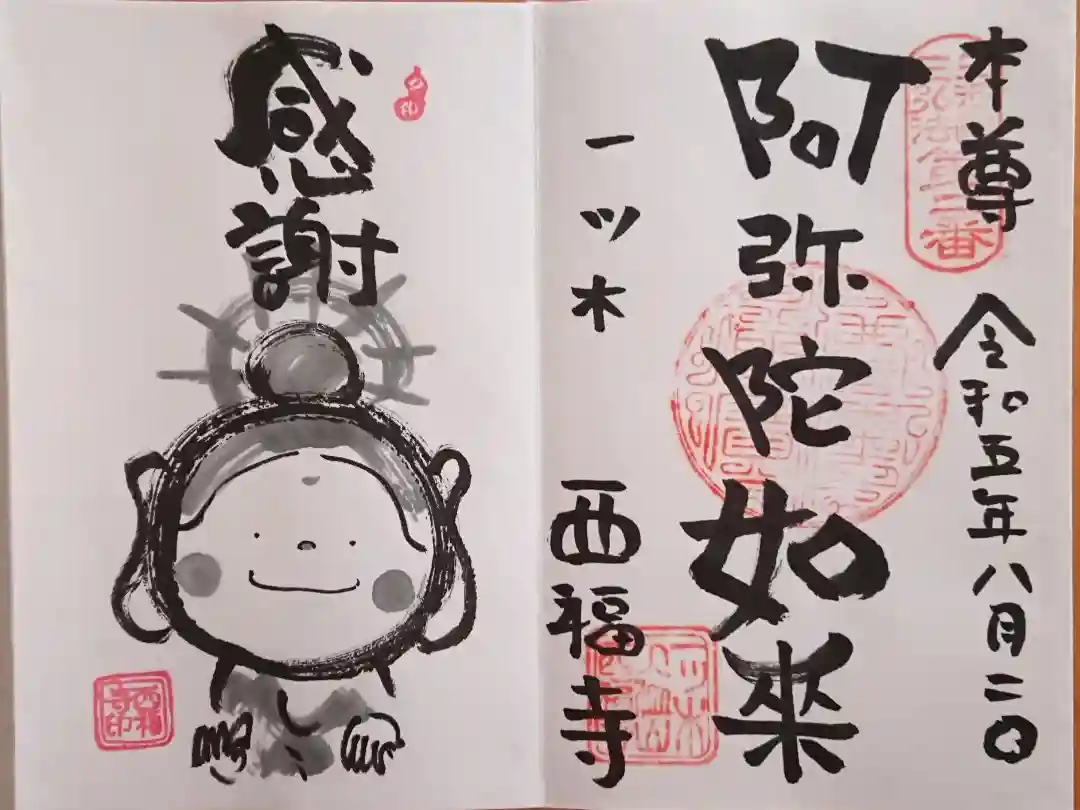 本尊　令和五年八月二〇
阿弥陀如来
一ツ木　西福寺
感謝
西福寺印